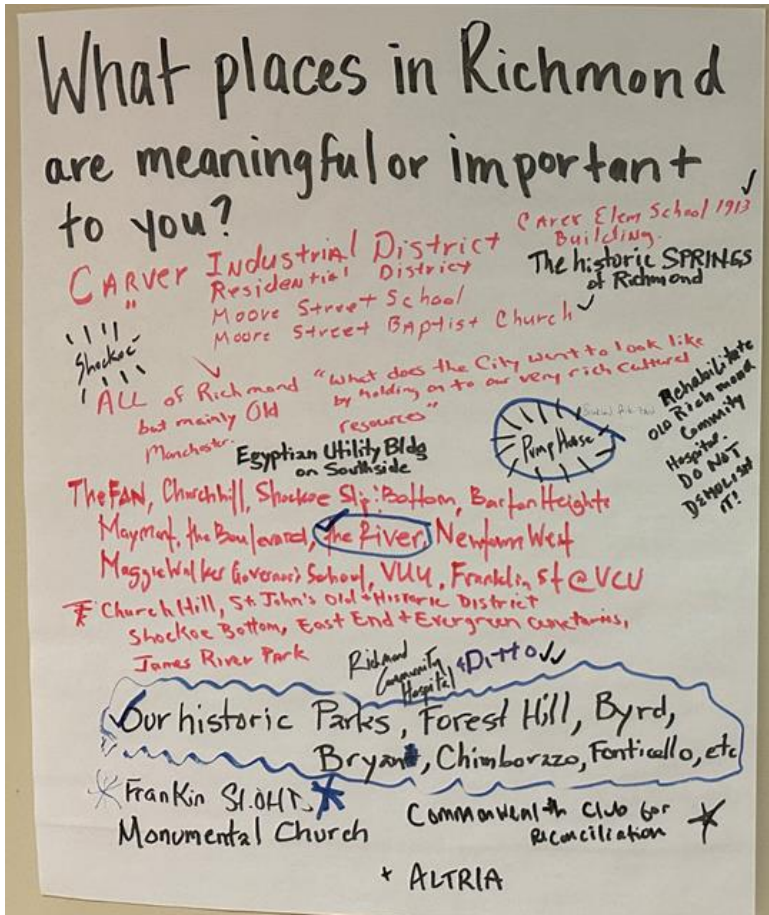 What places in Richmond
are meaningful or important
to you?
CARVER INDUSTRIAL DISTRICT
" Residential District
Moore Street School
Moore Street Baptist Church ✓
Carver Elem School 1913 ✓
Building.
The historic SPRINGS
of Richmond
Shockoe
ALL of Richmond
but mainly Old
Manchester.
"What does the City want to look like
by holding on to our very rich cultural
resources"
Egyptian Utility Bldg
on Southside
Pump House
Rehabilitate
OLD Richmond
Community
Hospital.
DO NOT
DEMOLISH
IT!
The FAN, Churchhill, Shockoe Slip:Bottom, Barton Heights
Maymont, the Boulevard, the River, Newtown West
Maggie Walker Governor's School, VUU, Franklin St @ VCU
Church Hill, St John's Old + Historic District
Shockoe Bottom, East End + Evergreen cemeteries,
James River Park
Richmond
Community
Hospital
+Ditto ✓✓
✓Our historic Parks, Forest Hill, Byrd,
Bryan, Chimborazo, Fonticello, etc
Frankin St. OHD
Monumental Church
Commonwealth Club for
Reconciliation
+ ALTRIA